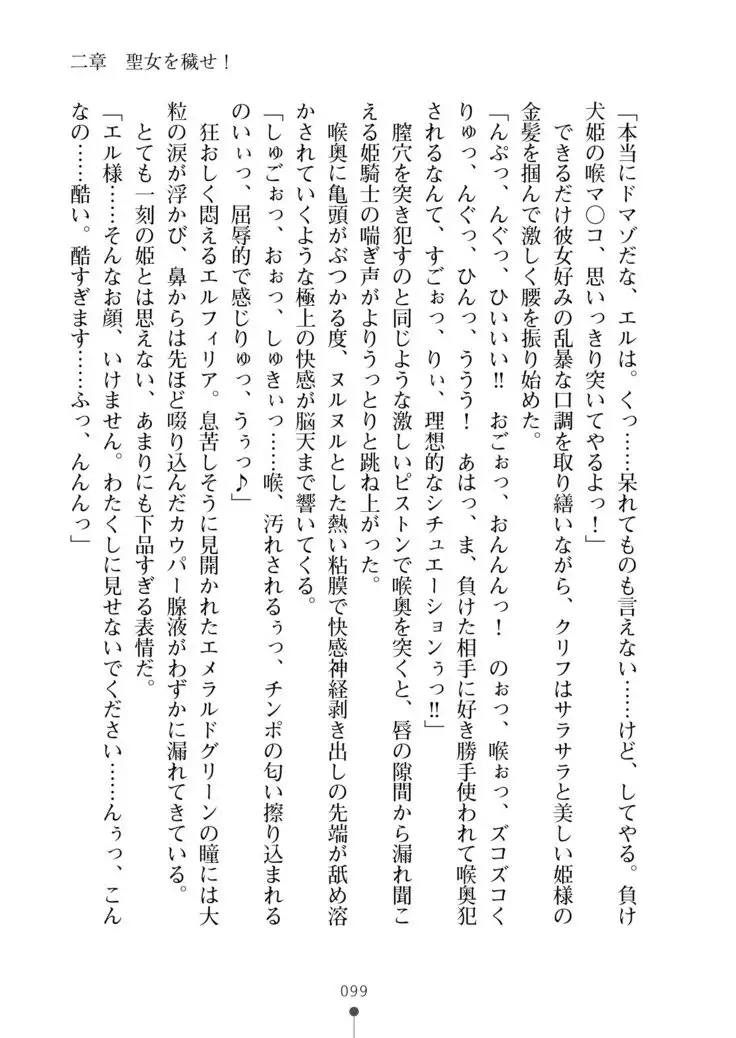 二章　聖女を穢せ！
「本当にドマゾだな、エルは。くっ……呆れてものも言えない……けど、してやる。負け
犬姫の喉マ〇コ、思いっきり突いてやるよっ！」
できるだけ彼女好みの乱暴な口調を取り繕いながら、クリフはサラサラと美しい姫様の
金髪を掴んで激しく腰を振り始めた。
「んぷっ、んぐっ、ひいいい!!　おごぉっ、おんんんっ！　のぉっ、喉ぉっ、ズコズコく
りゅっ、んぐっ、ひんっ、ううう！　あはっ、ま、負けた相手に好き勝手使われて喉奥犯
されるなんて、すごぉっ、りぃ、理想的なシチュエーションぅっ!!」
膣穴を突き犯すのと同じような激しいピストンで喉奥を突くと、唇の隙間から漏れ聞こ
える姫騎士の喘ぎ声がよりうっとりと跳ね上がった。
喉奥に亀頭がぶつかる度、ヌルヌルとした熱い粘膜で快感神経剥き出しの先端が舐め溶
かされていくような極上の快感が脳天まで響いてくる。
「しゅごぉっ、おぉっ、しゅきぃっ……喉、汚れされるぅっ、チンポの匂い擦り込まれる
のいぃっ、屈辱的で感じりゅっ、うぅっ♪」
狂おしく悶えるエルフィリア。息苦しそうに見開かれたエメラルドグリーンの瞳には大
粒の涙が浮かび、鼻からは先ほど啜り込んだカウパー腺液がわずかに漏れてきている。
とても一刻の姫とは思えない、あまりにも下品すぎる表情だ。
「エル様……そんなお顔、いけません。わたくしに見せないでください……んぅっ、こん
なの……酷い。酷すぎます……ふっ、んんんっ」
099